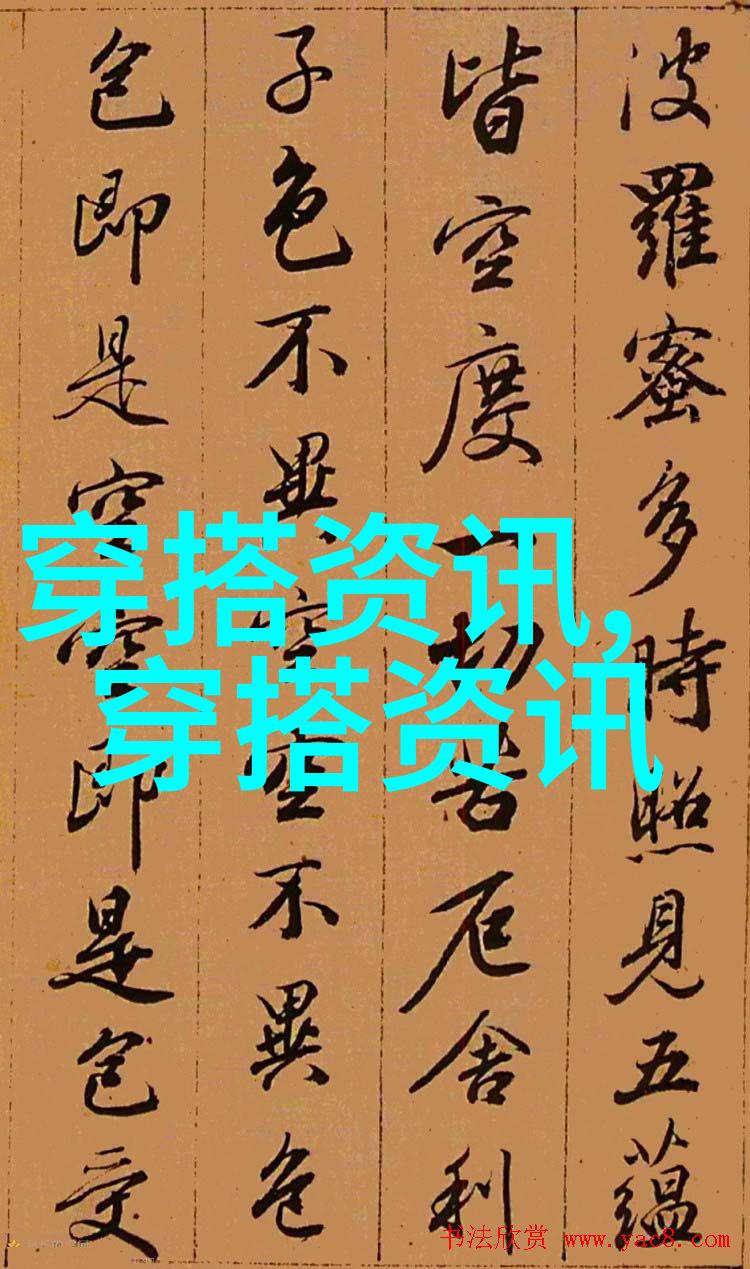 波羅蜜多時照見五蘊
皆空度一切苦厄舍利
子色不異空空不異色
色即是空空即是色受
穿搭资讯,
穿搭资讯
书法欣赏 www.yac8.com